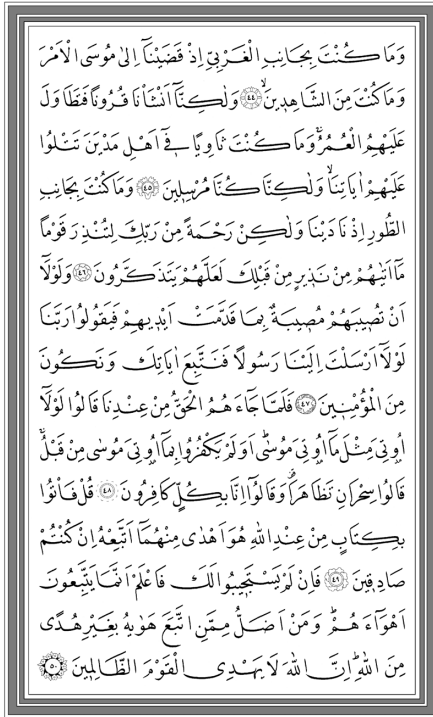 وَمَا كُنْتَ بِجَانِبِ الْغَرْبِيِّ اِذْ قَضَيْنَٓا اِلٰى مُوسَى الْاَمْرَ
وَمَا كُنْتَ مِنَ الشَّاهِد۪ينَۙ ﴿٤٤﴾ وَلٰكِنَّٓا اَنْشَأْنَا قُرُونًا فَتَطَاوَلَ
عَلَيْهِمُ الْعُمُرُۚ وَمَا كُنْتَ ثَاوِيًا ف۪ٓي اَهْلِ مَدْيَنَ تَتْلُوا
عَلَيْهِمْ اٰيَاتِنَاۙ وَلٰكِنَّا كُنَّا مُرْسِل۪ينَ ﴿٤٥﴾ وَمَا كُنْتَ بِجَانِبِ
الطُّورِ اِذْ نَادَيْنَا وَلٰكِنْ رَحْمَةً مِنْ رَبِّكَ لِتُنْذِرَ قَوْمًا
مَٓا اَتٰيهُمْ مِنْ نَذ۪يرٍ مِنْ قَبْلِكَ لَعَلَّهُمْ يَتَذَكَّرُونَ ﴿٤٦﴾ وَلَوْلَٓا
اَنْ تُص۪يبَهُمْ مُص۪يبَةٌ بِمَا قَدَّمَتْ اَيْد۪يهِمْ فَيَقُولُوا رَبَّنَا
لَوْلَٓا اَرْسَلْتَ اِلَيْنَا رَسُولًا فَنَتَّبِعَ اٰيَاتِكَ وَنَكُونَ
مِنَ الْمُؤْمِن۪ينَ ﴿٤٧﴾ فَلَمَّا جَٓاءَهُمُ الْحَقُّ مِنْ عِنْدِنَا قَالُوا لَوْلَٓا
اُو۫تِيَ مِثْلَ مَٓا اُو۫تِيَ مُوسٰىۜ اَوَلَمْ يَكْفُرُوا بِمَٓا اُو۫تِيَ مُوسٰى مِنْ قَبْلُۚ
قَالُوا سِحْرَانِ تَظَاهَرَا۠ وَقَالُٓوا اِنَّا بِكُلٍّ كَافِرُونَ ﴿٤٨﴾ قُلْ فَأْتُوا
بِكِتَابٍ مِنْ عِنْدِ اللّٰهِ هُوَ اَهْدٰى مِنْهُمَٓا اَتَّبِعْهُ اِنْ كُنْتُمْ
صَادِق۪ينَ ﴿٤٩﴾ فَاِنْ لَمْ يَسْتَج۪يبُوا لَكَ فَاعْلَمْ اَنَّمَا يَتَّبِعُونَ
اَهْوَٓاءَهُمْۜ وَمَنْ اَضَلُّ مِمَّنِ اتَّبَعَ هَوٰيهُ بِغَيْرِ هُدًى
مِنَ اللّٰهِۜ اِنَّ اللّٰهَ لَا يَهْدِي الْقَوْمَ الظَّالِم۪ينَ ﴿٥٠﴾